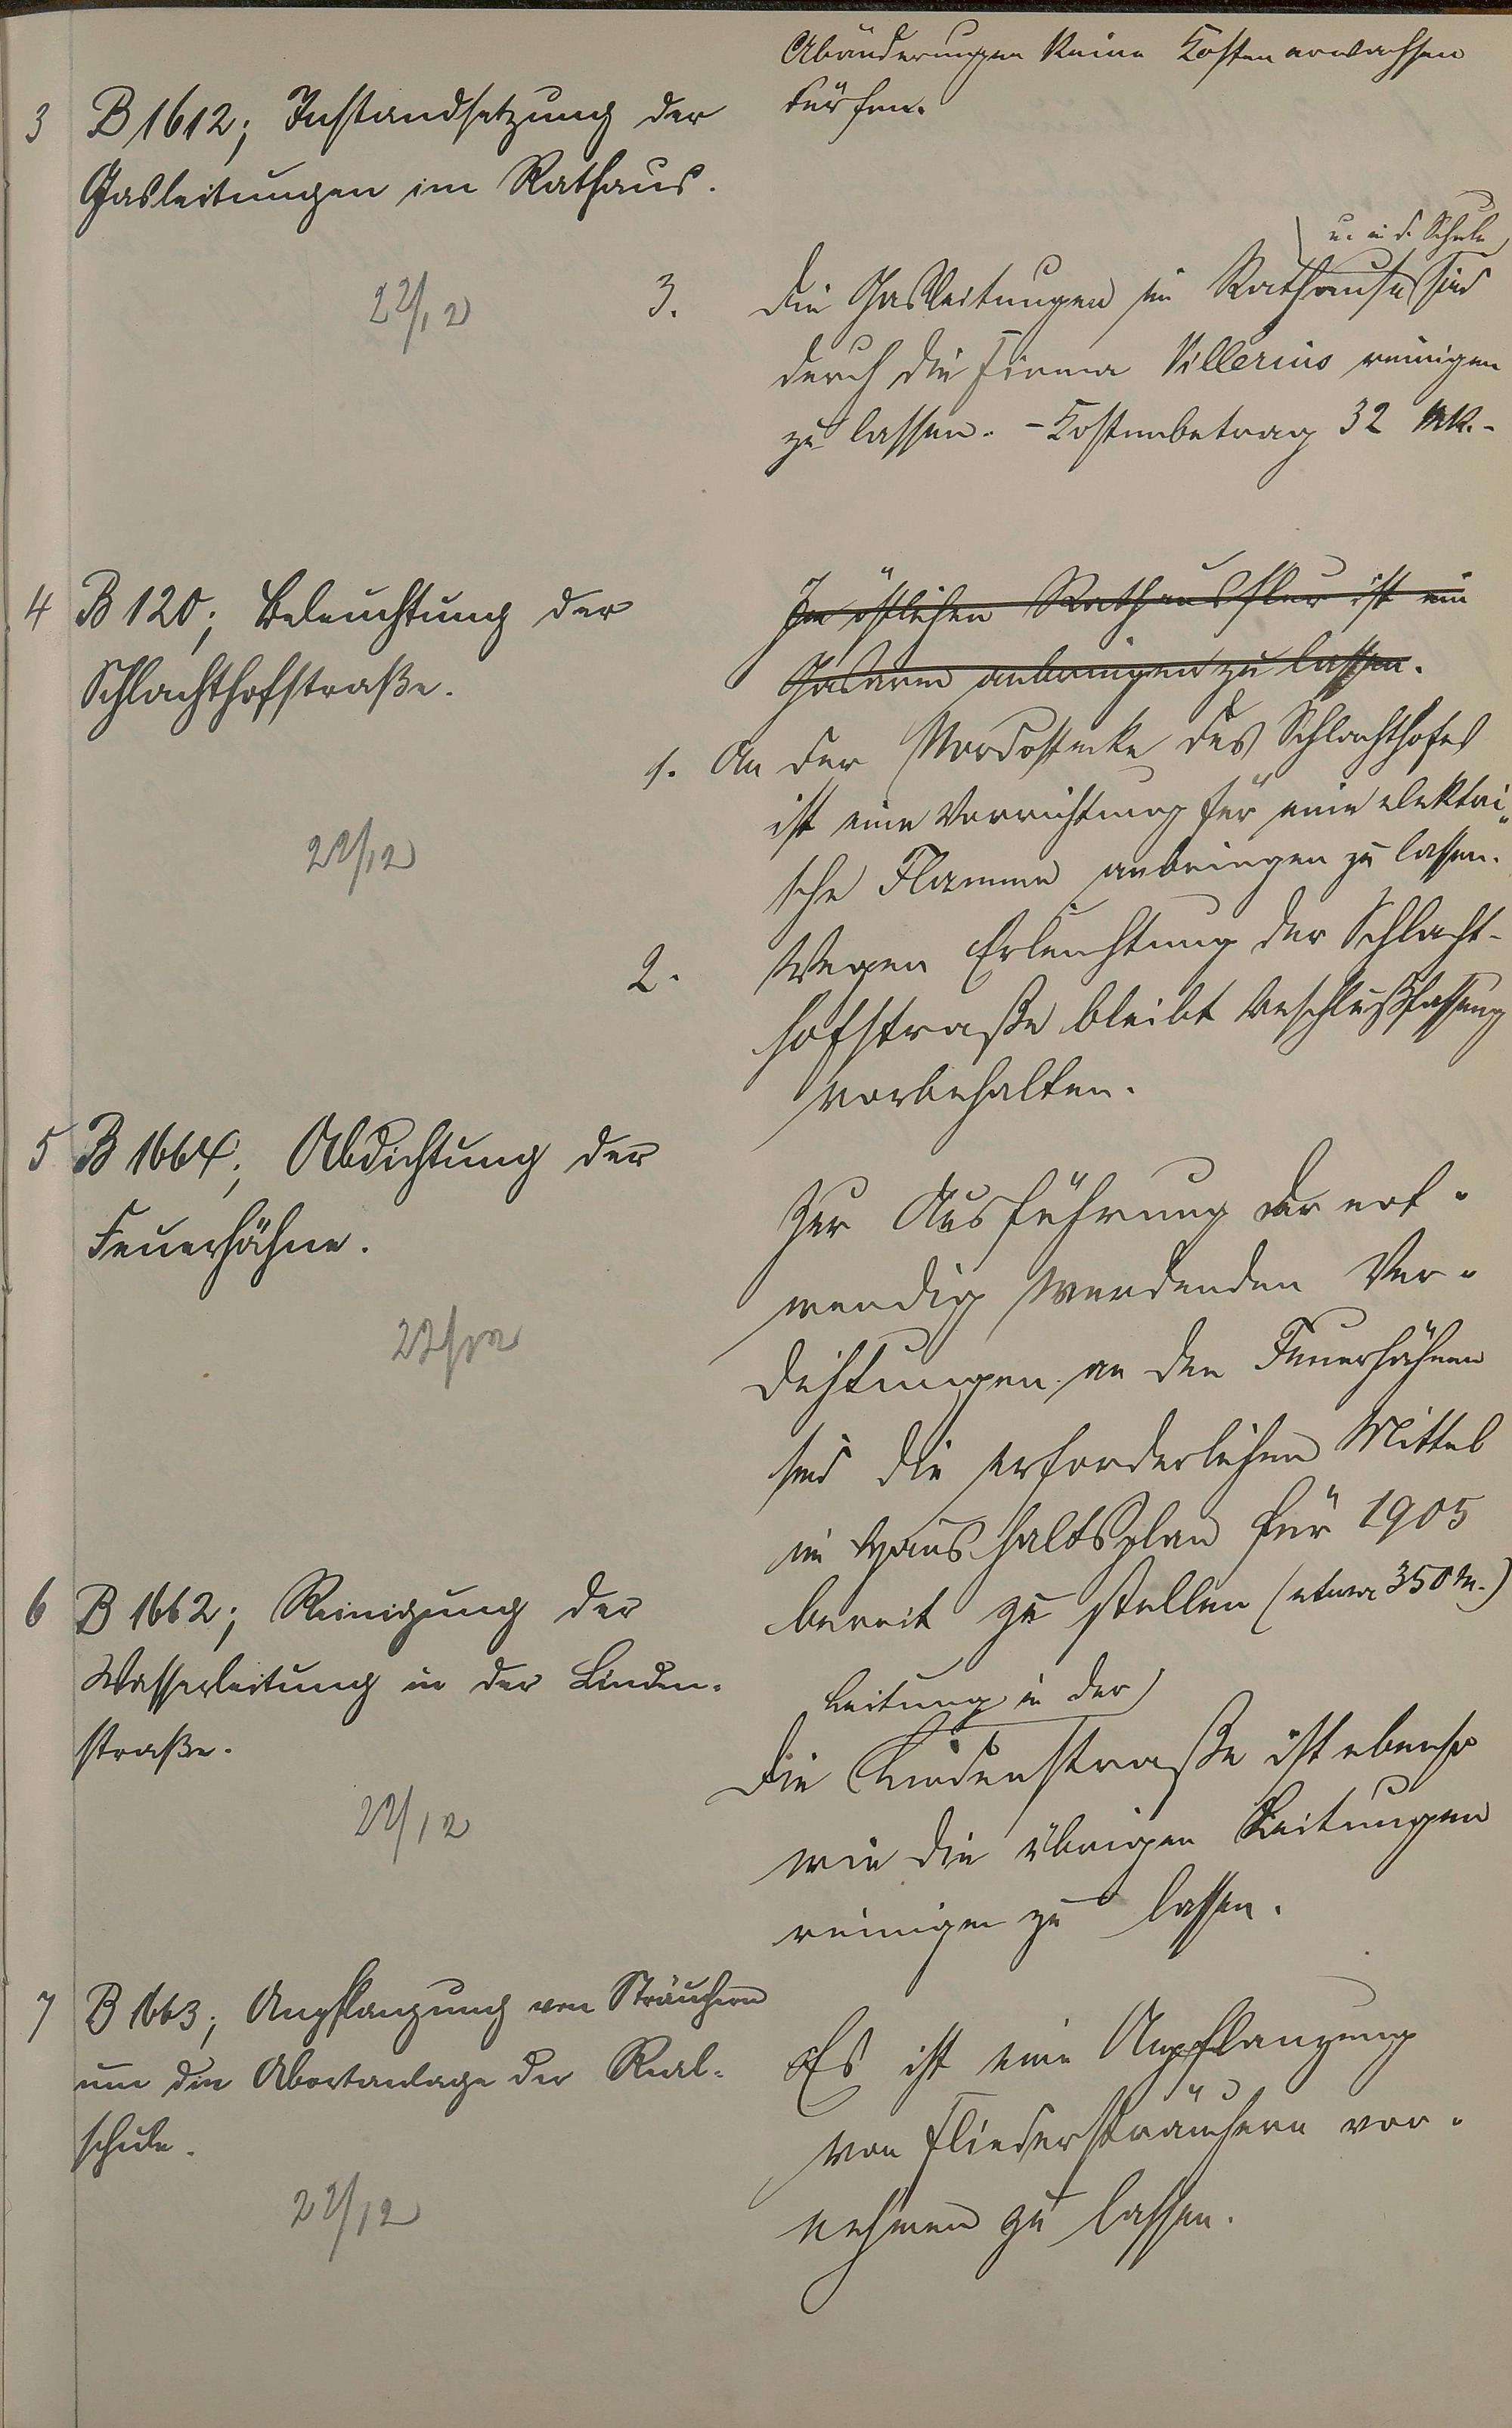 Abänderungen keine Kosten erwachsen
dürfen.
3 B 1612; Instandsetzung der
Gasleitungen im Rathaus.
22/12
u. in d. Schule
3. Die Gasleitungen im Rathause sind
durch die Firma Villerius reinigen
zu lassen. - Kostenbetrag 32 Mk. -
4 B 120; Beleuchtung der
Schlachthofstraße.
22/12
Im östlichen Rathausflur ist ein
Gasarm anbringen zu lassen.
1. An der Nordostecke des Schlachthofes
ist eine Vorrichtung für eine elektri-
sche Flamme anbringen zu lassen.
2. Wegen Erleuchtung der Schlacht-
hofstraße bleibt Beschlußfassung
vorbehalten.
5 B 1664; Abdichtung der
Feuerhähne.
22/12
Zur Ausführung der not-
wendig werdenden Ver-
dichtungen an den Feuerhähnen
sind die erforderlichen Mittel
im Haushaltsplan für 1905
bereit zu stellen (etwa 350 M.)
6 B 1662; Reinigung der
Wasserleitung in der Linden-
straße.
22/12
Leitung in der
Die Lindenstraße ist ebenso
wie die übrigen Leitungen
reinigen zu lassen.
7 B 1663; Anpflanzung von Sträuchern
um die Abortanlage der Real-
schule.
22/12
Es ist eine Anpflanzung
von Fliedersträuchern vor-
nehmen zu lassen.